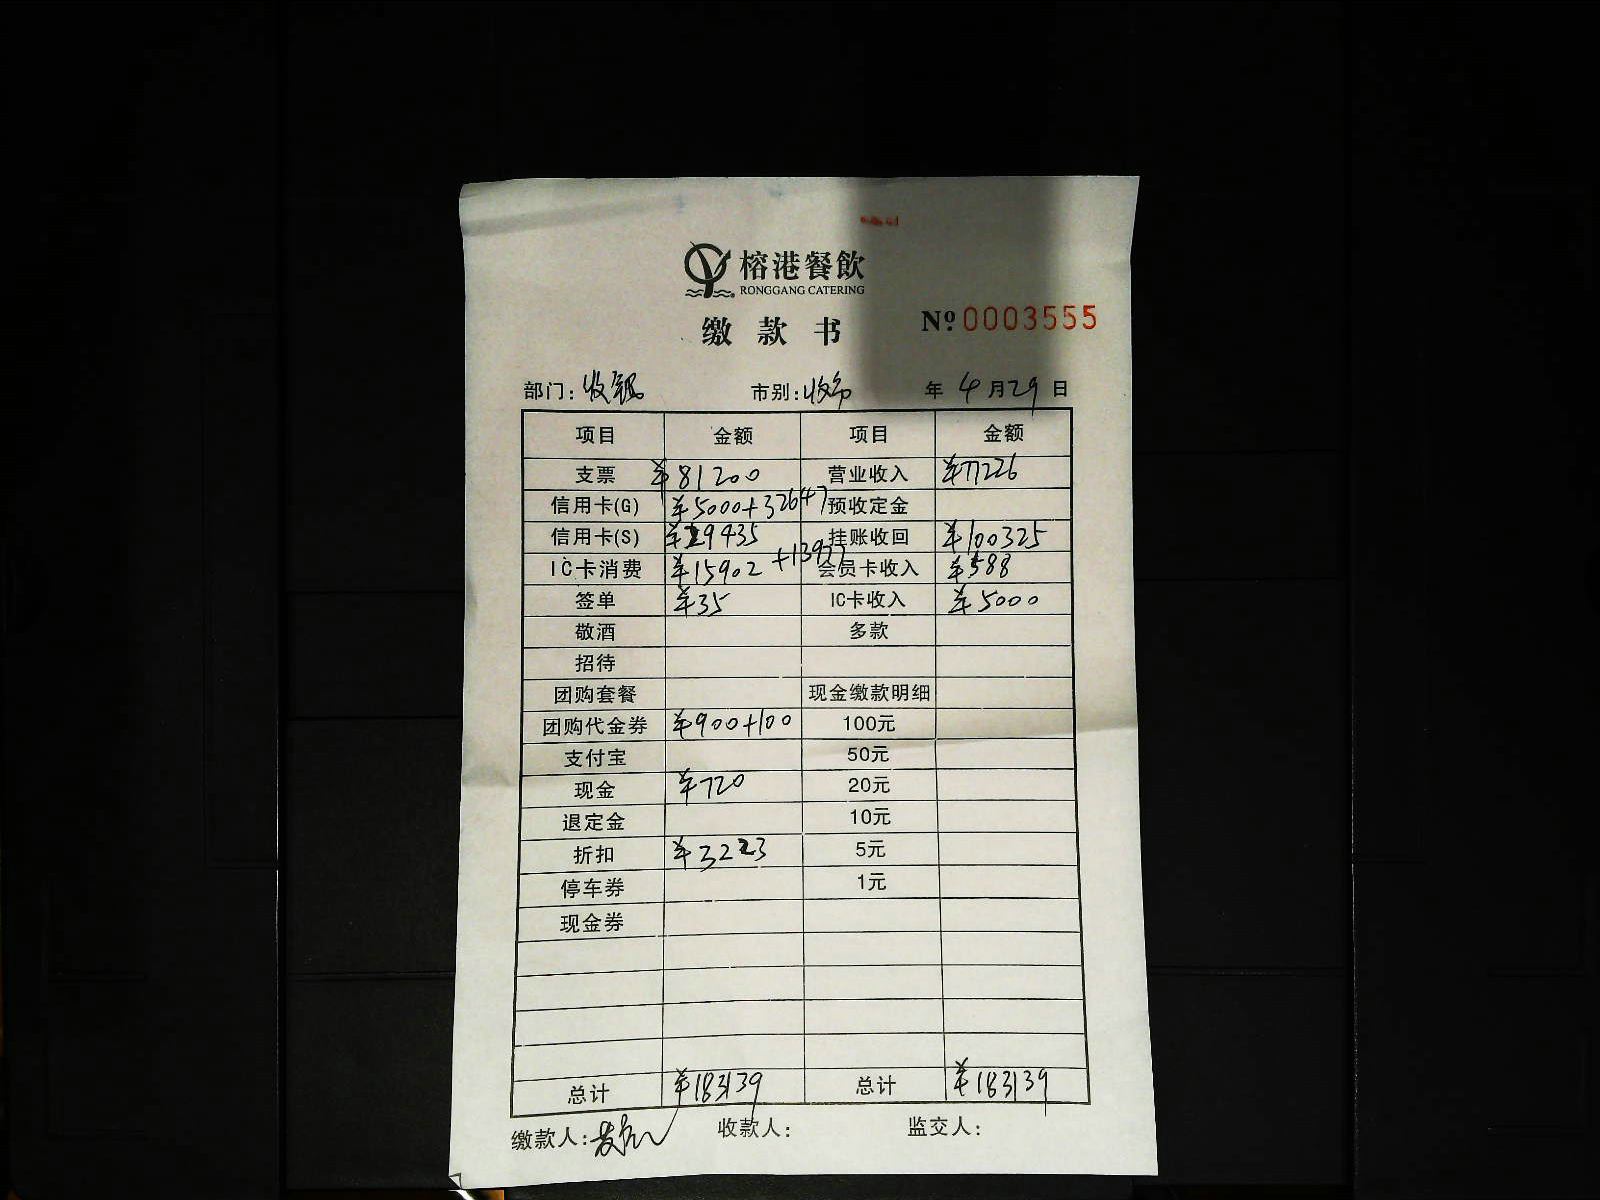 榕港餐飲
RONGGANG CATERING
缴款书 № 0003555
部门: 收银 市别: 收市 年 4月29日
项目 金额 项目 金额
支票 ¥81200 营业收入 ¥77226
信用卡(G) ¥5000+32647 预收定金
信用卡(S) ¥29435 挂账收回 ¥100325
IC卡消费 ¥15902+13977 会员卡收入 ¥588
签单 ¥35 IC卡收入 ¥5000
敬酒 多款
招待
团购套餐 现金缴款明细
团购代金券 ¥900+100 100元
支付宝 50元
现金 ¥720 20元
退定金 10元
折扣 ¥3223 5元
停车券 1元
现金券
总计 ¥183139 总计 ¥183139
缴款人: 收款人: 监交人: